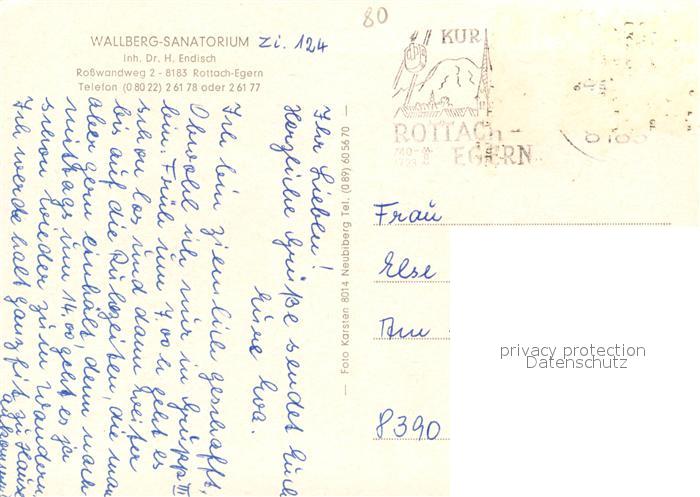 WALLBERG-SANATORIUM Zi. 124
Inh. Dr. H. Endisch
Roßwandweg 2 - 8183 Rottach-Egern
Telefon (0 80 22) 2 61 78 oder 2 61 77
Ihr Lieben!
Herzliche Grüße sendet Euch
Eure Eva.
Ich bin ziemlich geschafft,
Obwohl ich nur in Gruppe III
bin. Früh um 7.00 h geht es
schon los und dann weiter
bis auf die Ruhezeiten, die man
aber gern einhält, denn nach
mittags um 14.00 geht es ja
schon wieder zum Wandern.
Ich werde halt ganz fit zu Hause
ankommen
— Foto Karsten 8014 Neubiberg Tel. (0 89) 60 56 70 —
80
KUR
ROTTACH-
EGERN
8183
Frau
Else
Am
8390
privacy protection
Datenschutz